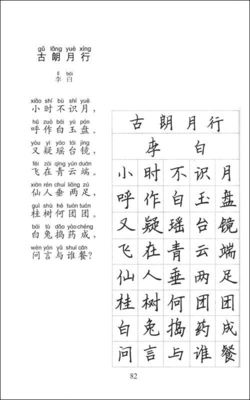 gǔ lǎng yuè xíng
古朗月行
lǐ bái
李白
xiǎo shí bù shí yuè
小时不识月，
hū zuò bái yù pán
呼作白玉盘。
yòu yí yáo tái jìng
又疑瑶台镜，
fēi zài qīng yún duān
飞在青云端。
xiān rén chuí liǎng zú
仙人垂两足，
guì shù hé tuán tuán
桂树何团团。
bái tù dǎo yào chéng
白兔捣药成，
wèn yán yǔ shuí cān
问言与谁餐？
古朗月行
李白
小时不识月
呼作白玉盘
又疑瑶台镜
飞在青云端
仙人垂两足
桂树何团团
白兔捣药成
问言与谁餐
82